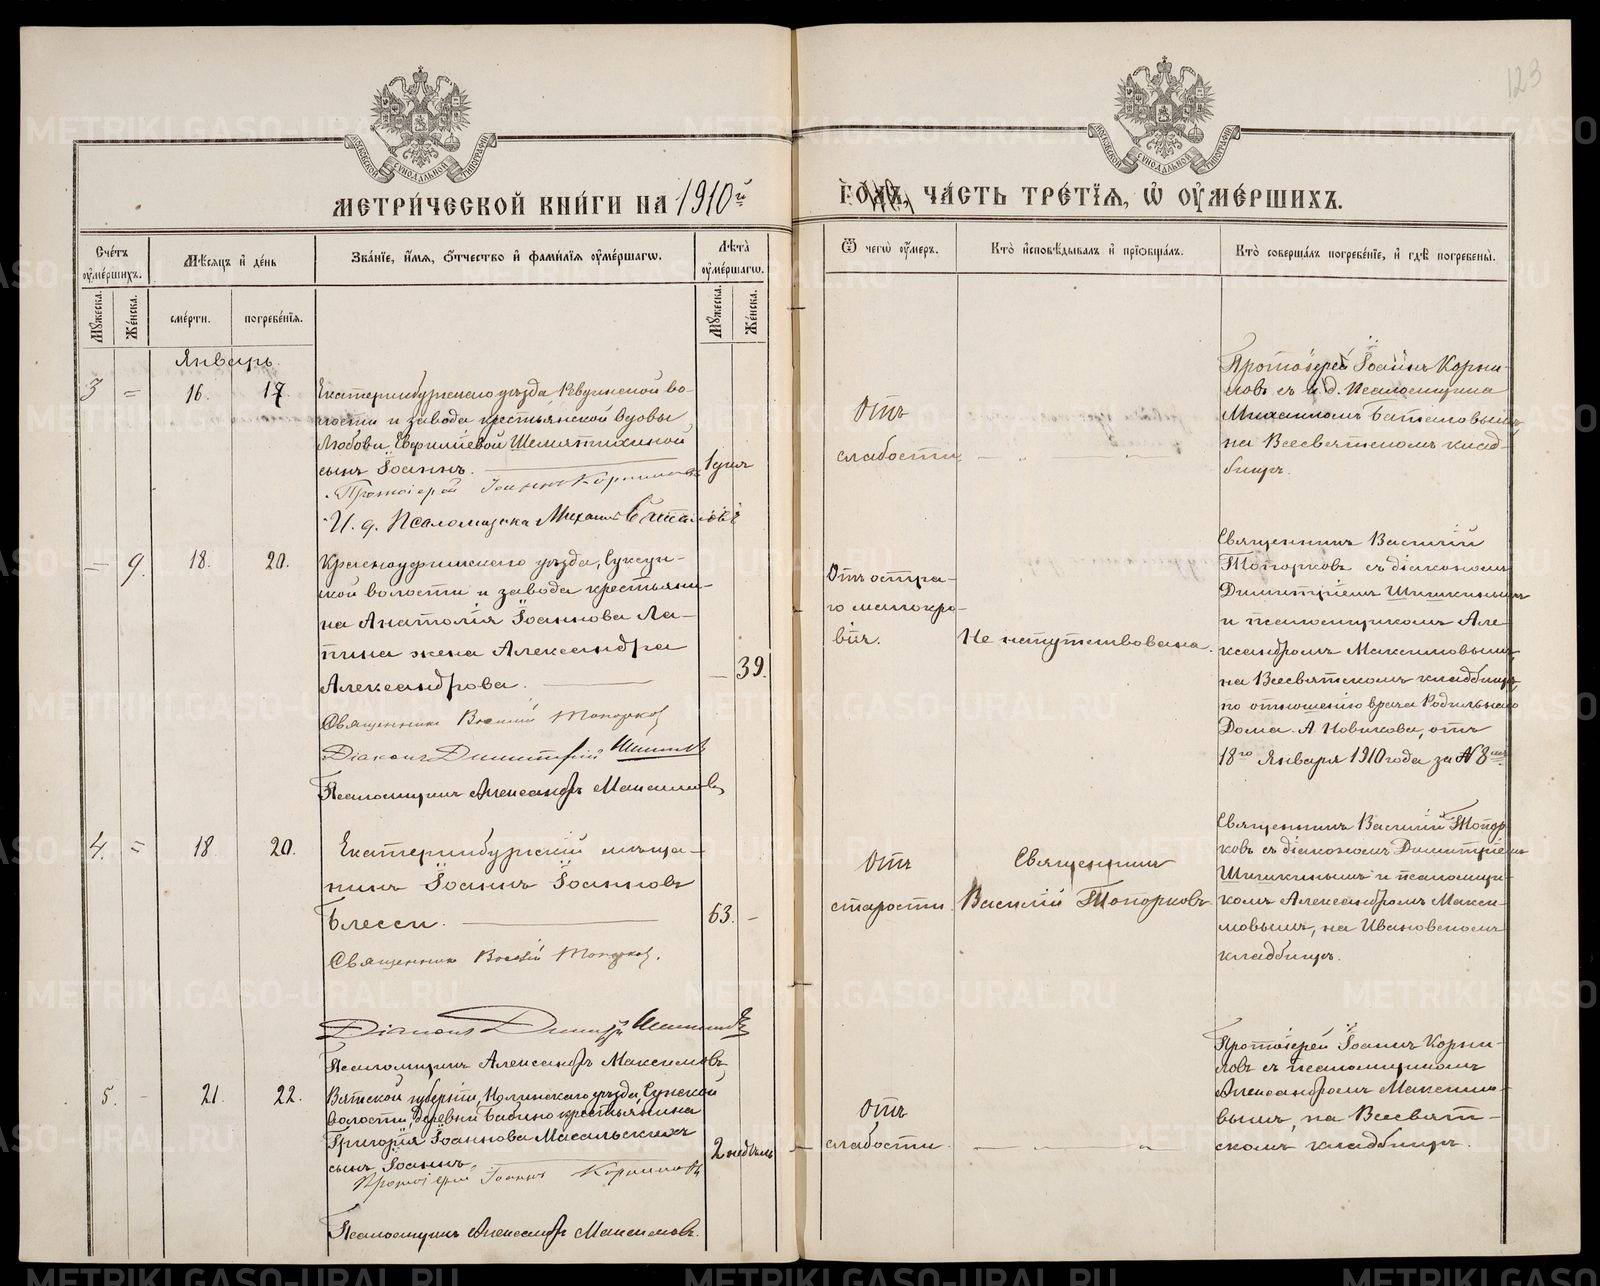 123
МОСКОВСКОЙ СУНОДАЛЬНОЙ ТИПОГРАФІИ
МОСКОВСКОЙ СУНОДАЛЬНОЙ ТИПОГРАФІИ
МЕТРИ́ЧЕСКОЙ КНИ́ГИ НА 1910й
ГО́ДЪ, ЧА́СТЬ ТРЕ́ТІЯ, Ѡ ОУМЕ́РШИХЪ.
Сче́тъ оумéршихъ.
Мѣсяцъ и де́нь
Зва́ніе, и́мя, о́тчество и фами́лія оумéршагѡ.
Лѣта̀ оумéршагѡ.
Ѿ чегѡ̀ оу́меръ.
Кто̀ исповѣдывалъ и пріѡбща́лъ.
Кто̀ соверша́лъ погребе́ніе, и гдѣ̀ погребены̀.
Мужеска.
Женска.
сме́рти.
погребе́нія.
Мужеска.
Женска.
Январь.
3 = 16. 17.
Екатеринбургскаго уѣзда, Ревдинской во-
лости и завода крестьянской вдовы
Любови Евфиміевой Шемятихиной
сынъ Іоаннъ.
1 дня
Протоіерей Іоаннъ Корнилов
И. д. Псаломщика Михаилъ
Отъ
слабости
Протоіерей Іоаннъ Корни-
ловъ съ и. д. Псаломщика
Михаиломъ
на Всесвятскомъ клад-
бищѣ.
— 9. 18. 20.
Красноуфимскаго уѣзда, Суксун-
ской волости и завода крестьяни-
на Анатолія Іоаннова Ла-
пина жена Александра
Александрова.
— 39.
Священникъ Василій Топорков
Діаконъ Димитрій Шишкин
Псаломщикъ Александръ Максимовъ
Отъ остра-
го малокро-
вія.
Не напутствована.
Священникъ Василій
Топорковъ съ діакономъ
Димитріемъ Шишкинымъ
и псаломщикомъ Але-
ксандромъ Максимовымъ,
на Всесвятскомъ кладбищѣ,
по отношенію врача Родильнаго
Дома А. Новикова, отъ
18го Января 1910 года за № 8мъ
4. = 18. 20.
Екатеринбургскій мѣща-
нинъ Іоаннъ Іоанновъ
Блесси.
63. —
Священникъ Василій Топорков.
Діаконъ Димитрій Шишкинъ
Псаломщикъ Александръ Максимовъ
Отъ
старости.
Священникъ
Василій Топорковъ
Священникъ Василій Топор-
ковъ съ діакономъ Димитріемъ
Шишкинымъ и псаломщи-
комъ Александромъ Макси-
мовымъ, на Ивановскомъ
кладбищѣ.
5. - 21. 22.
Вятской губерніи, Нолинскаго уѣзда, Сунской
волости, деревни Бабино крестьянина
Григорія Іоаннова Масальскихъ
сынъ Іоаннъ.
2 недѣль
Протоіерей Іоаннъ Корнилов
Псаломщикъ Александръ Максимовъ.
Отъ
слабости.
Протоіерей Іоаннъ Корни-
ловъ съ псаломщикомъ
Александромъ Максимо-
вымъ, на Всесвят-
скомъ кладбищѣ.
METRIKI.GASO-URAL.RU